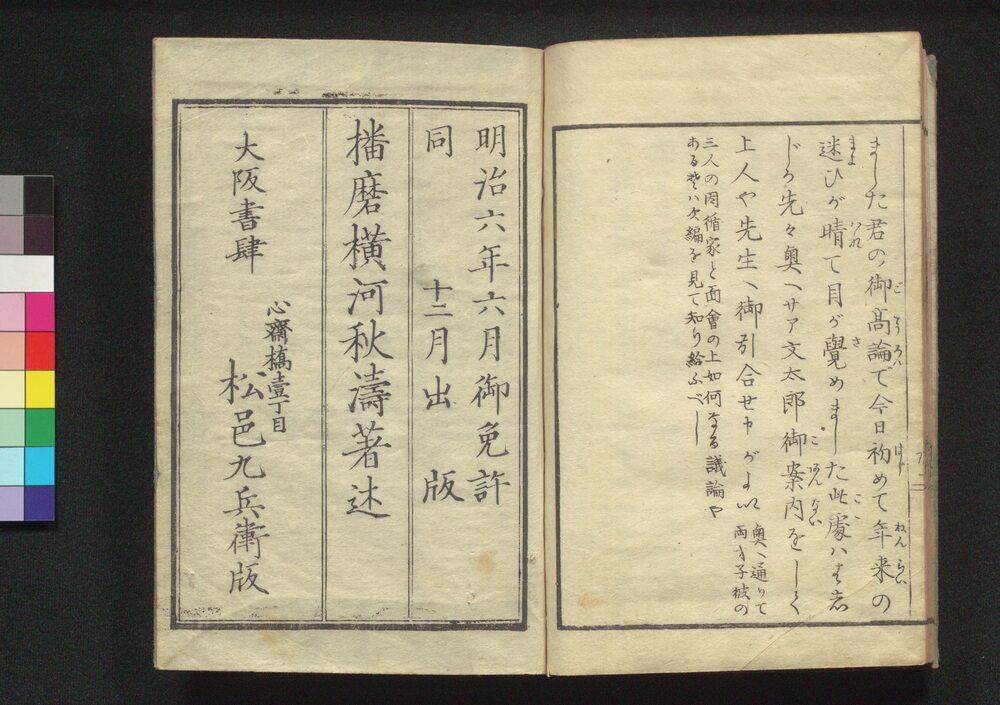 ました君の御高論で今日初めて年来の
迷ひが晴て目が覚めました此処ハマ岩
じろ先々奥へサア文太郎御案内をしく
上人や先生へ御引合せ申がよい 奥へ通りて
両才子彼の
三人の因循家と面會の上如何なる議論や
ある其ハ次編を見て知り給ふべし
明治六年六月御免許
同 十二月出版
播磨横河秋濤著述
大阪書肆
心齋橋壹丁目
松邑九兵衛版